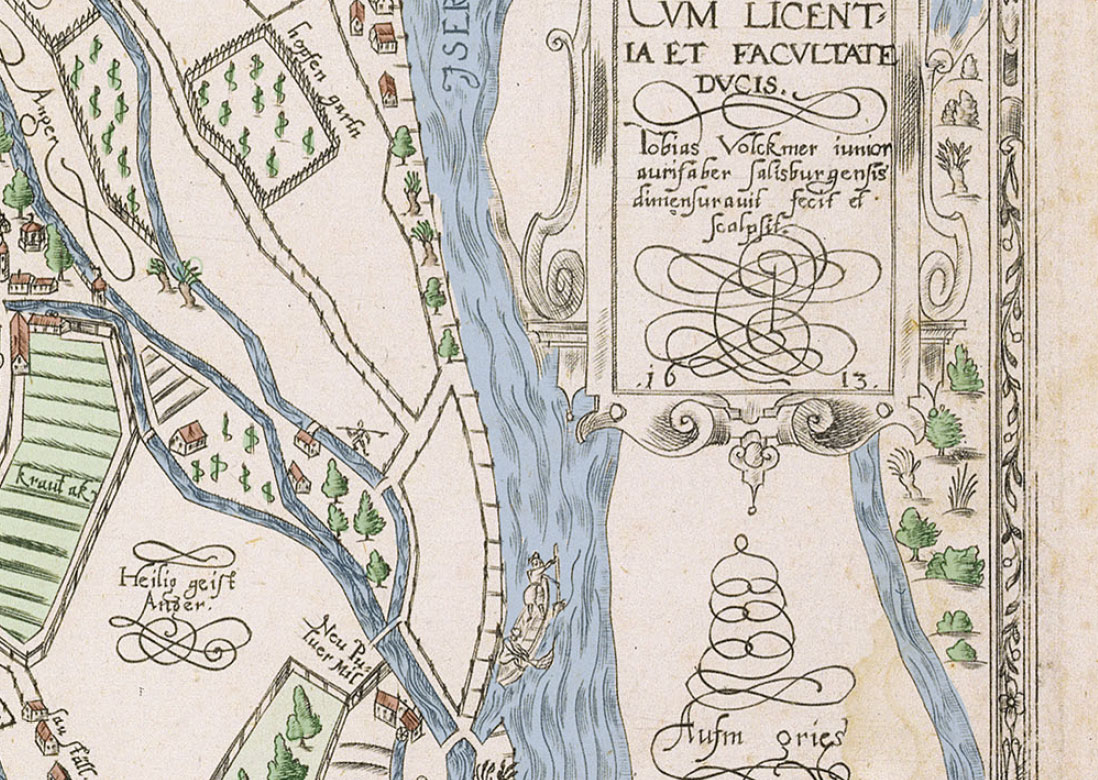 CVM LICENT-
IA ET FACVLTATE
DVCIS.
Tobias Volckmer iunior
aurifaber Salisburgensis
dimensurauit fecit et
scalpsit.
.16 13.
ISER
hopffen garten
Anger
Kraut ak
Heilig geist
Anger.
Neu Pu-
luer Mil
Aufm gries